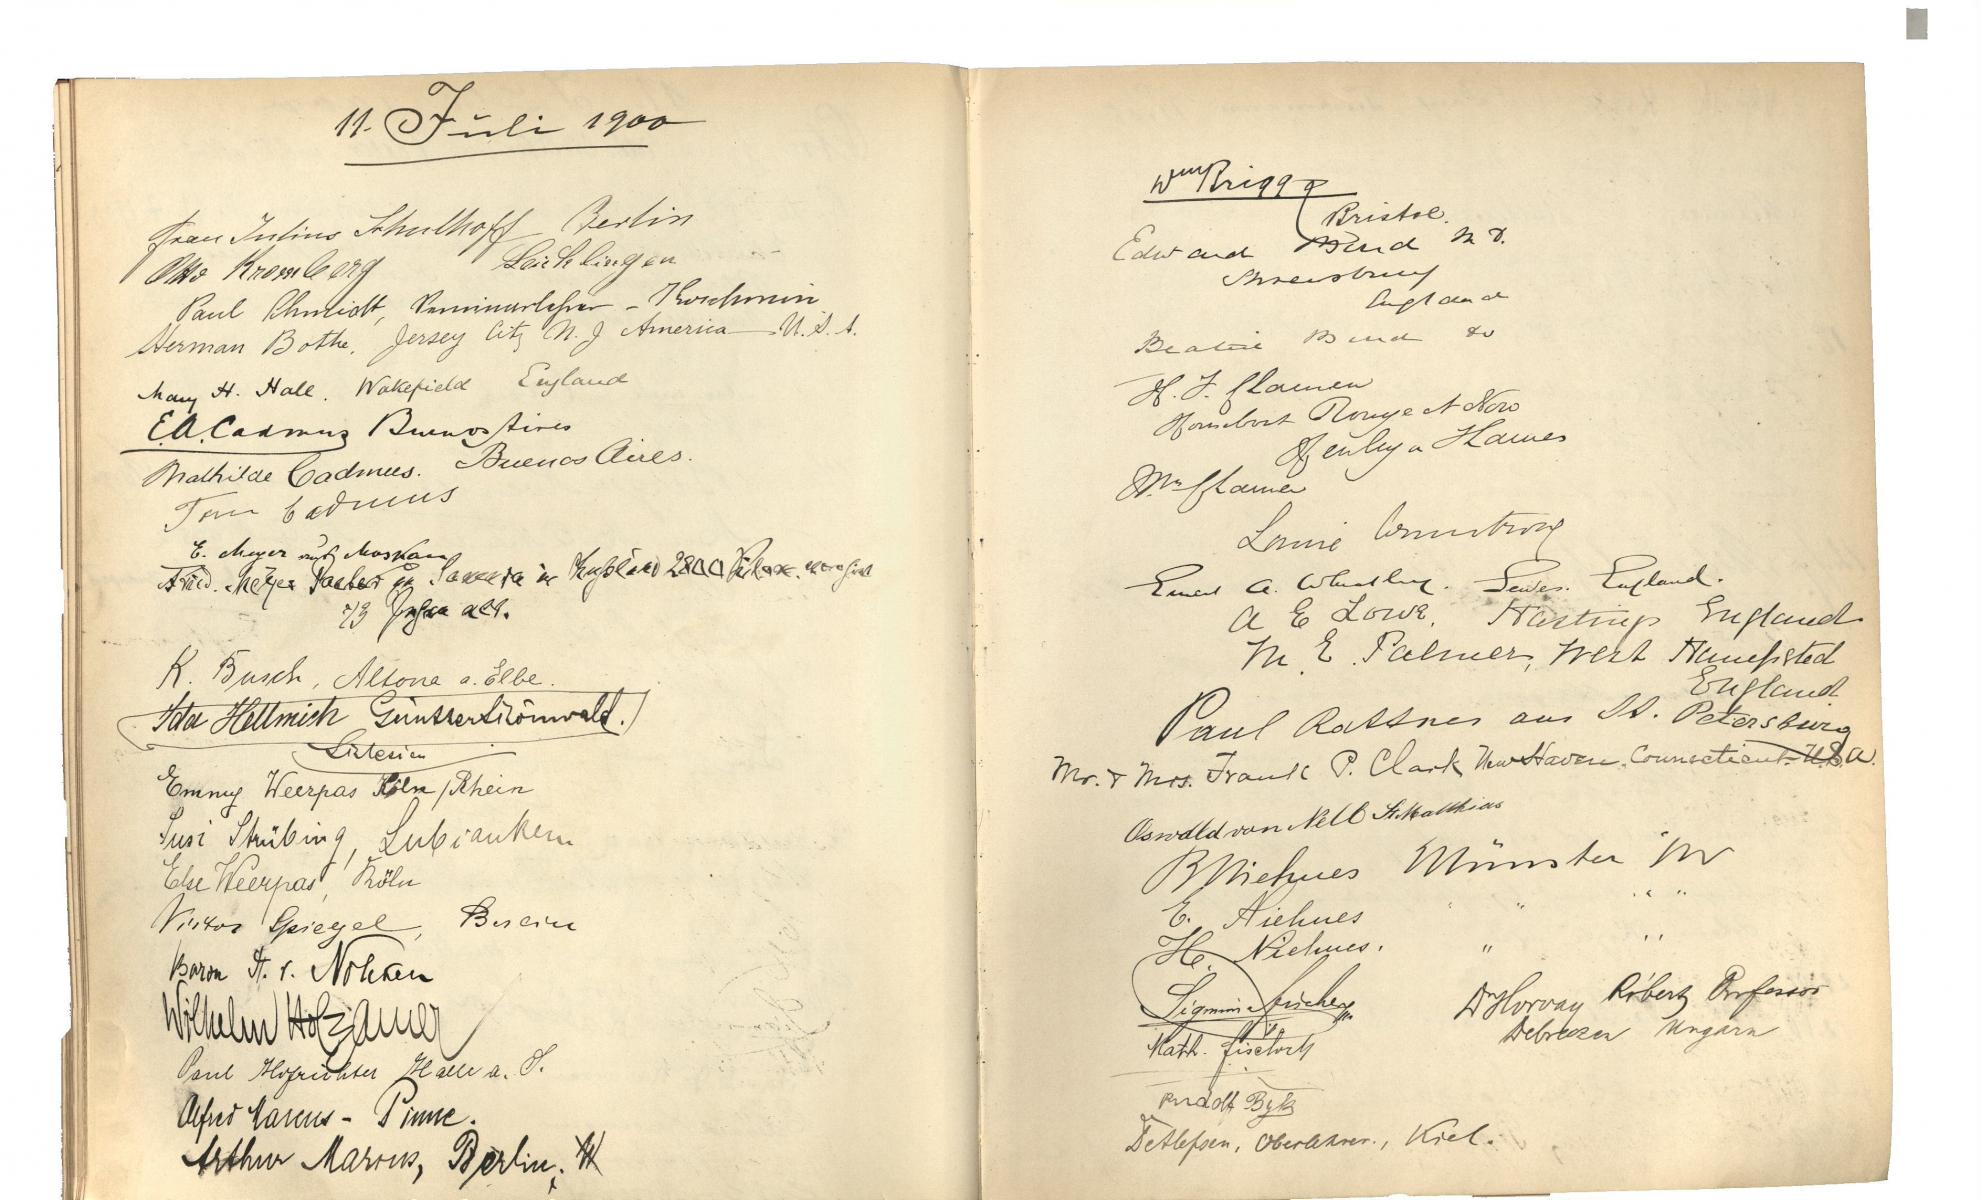 11. Juli 1900
Frau Julius Schulhoff Berlin
Otto Kromberg Leichlingen
Paul Schmidt, Seminarlehrer - Koschmin
Herman Bothe, Jersey City N. J America U. S. A.
Mary H. Hall. Wakefield England
E. A. Cadmus Buenos Aires
Mathilde Cadmus. Buenos Aires.
Cadmus
E. Meyer aus Moskau
Meyer Pastor in in Rußland 2800
73 Jahre alt.
K. Busch, Altona a. Elbe.
Ida Hellmich
Emmy Weerpas Köln/Rhein
Susi Strübing, Lubianken
Else Weerpas, Köln
Victor Spiegel, Berlin
Baron v. Nolcken
Wilhelm Holzamer
Paul Hofrichter Halle a. S.
Alfred Marcus - Pinne.
Arthur Marcus, Berlin, W
Wm Briggs
Bristol.
Edward Burd M D.
Shrewsbury
England
Beatrice Burd do
Henley a Thames
Louie Armstrong
A. England.
A E Lowe, Hastings England
M. E. Palmer, West Hampsted
England
Paul Rattner aus St. Petersburg
Mr. & Mrs. Frank P. Clark New Haven. Connecticut. U.S.A.
Oswald von Nell St. Matthias
B Niehues Münster i W
E. Niehues " " " "
H. Niehues. " "
Dr Horvay Róbert Professor
Debreczen Ungarn
Rudolf
Detlefsen, Oberlehrer, Kiel.